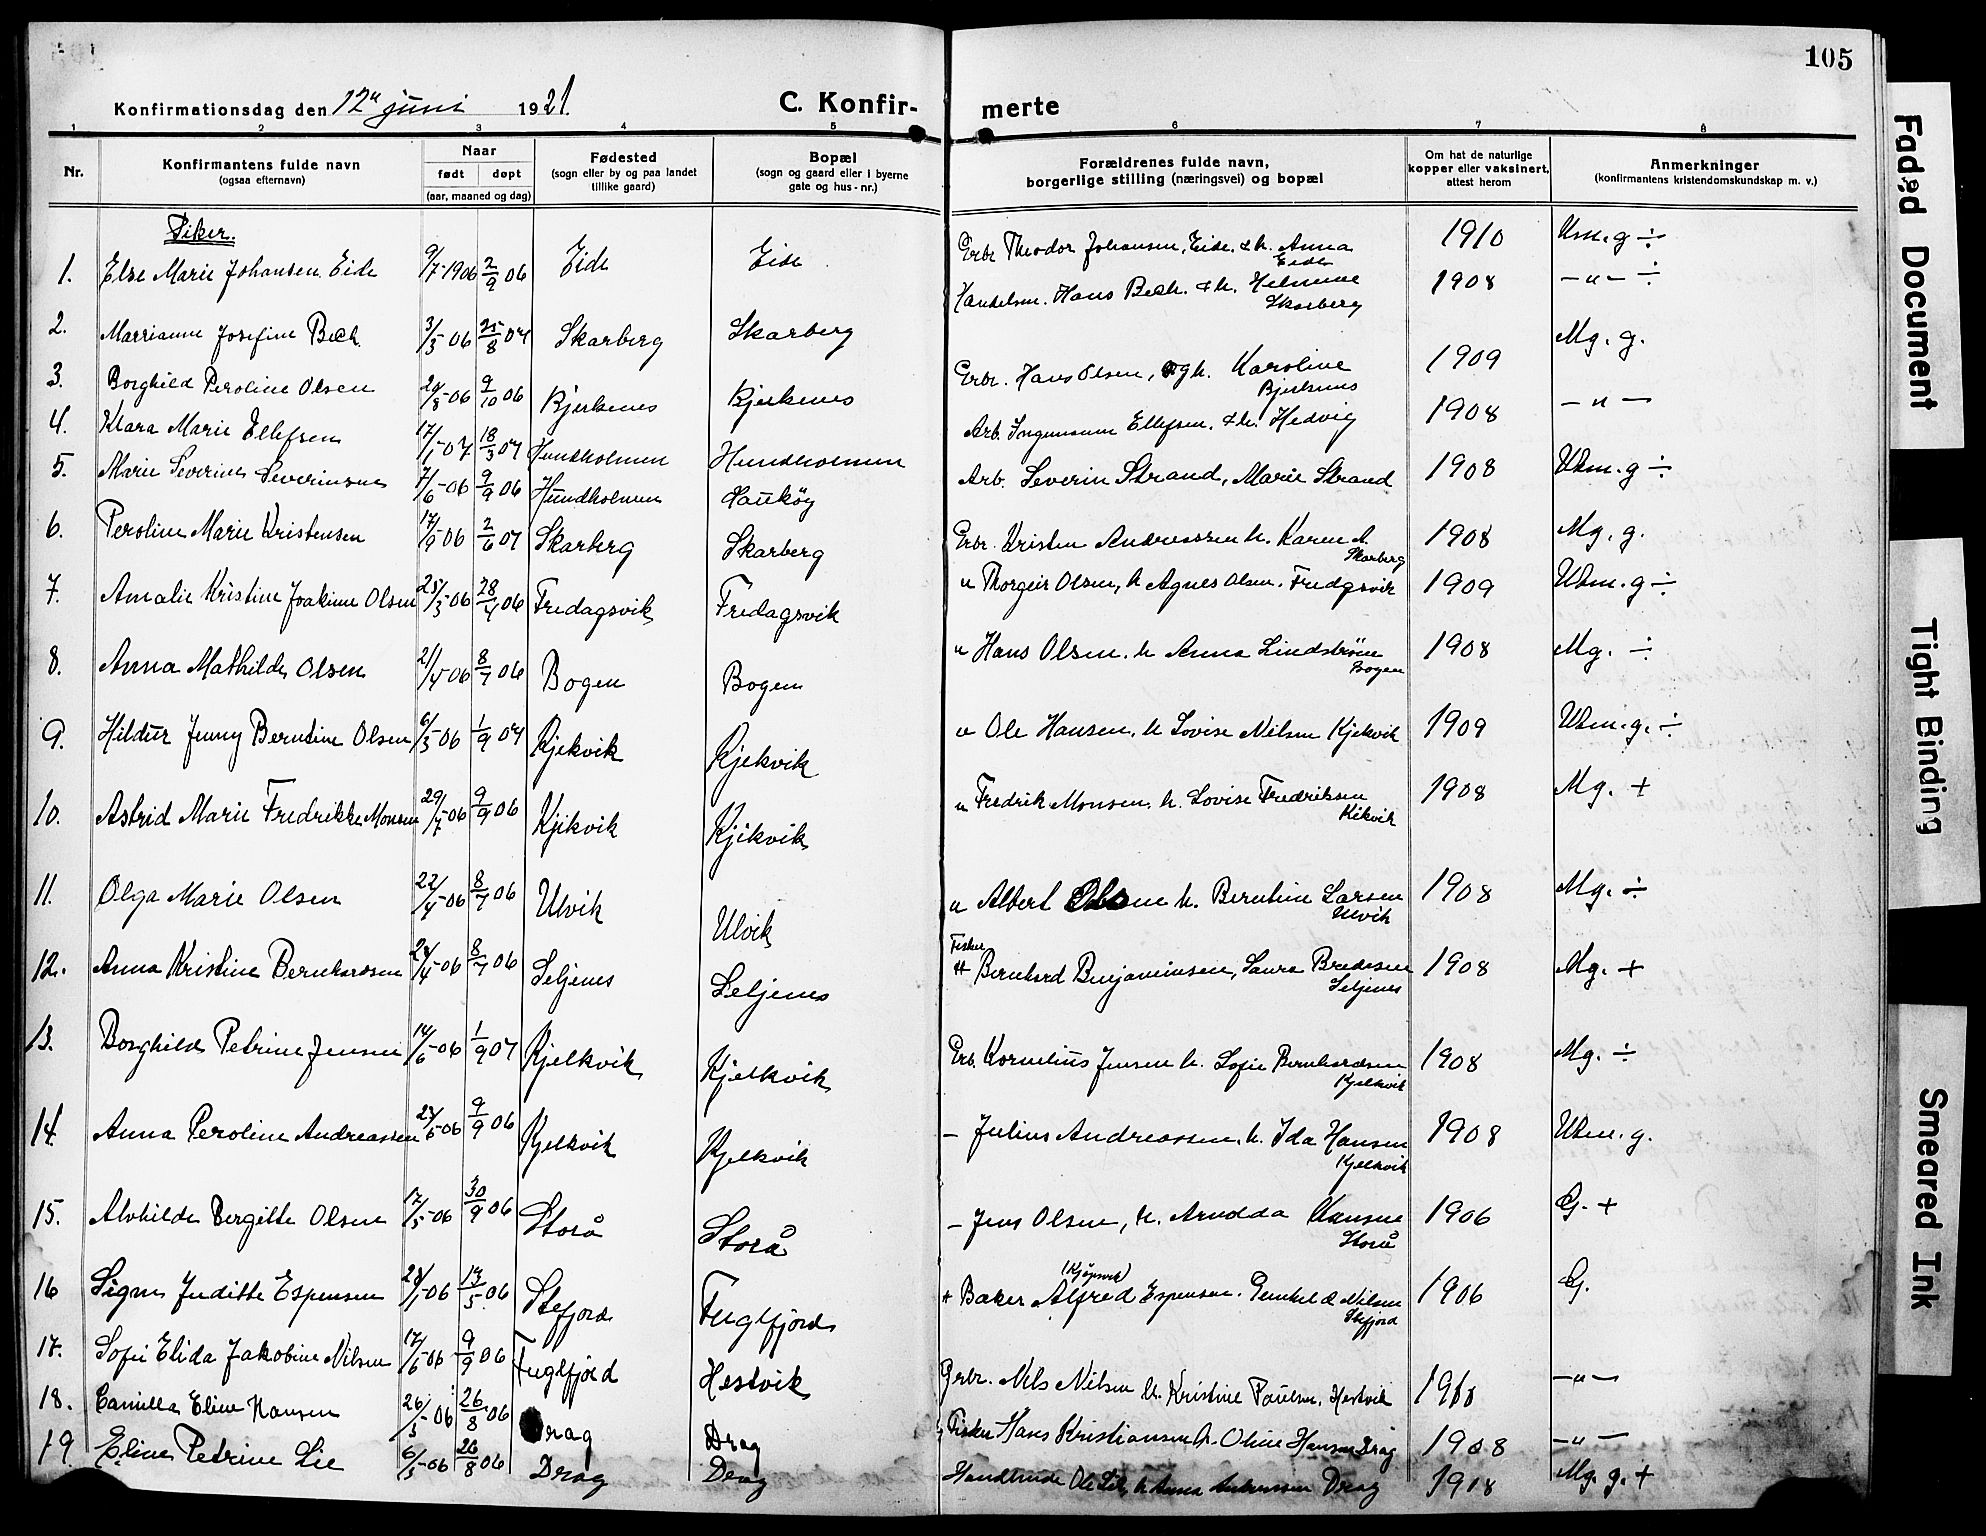 105
Konfirmationsdag den 12te juni 1921.
C. Konfir-
merte
1 2 3 4 5 6 7 8
Nr.
Konfirmantens fulde navn
(ogsaa efternavn)
Naar
født døpt
(aar, maaned og dag)
Fødested
(sogn eller by og paa landet
tillike gaard)
Bopæl
(sogn og gaard eller i byerne
gate og hus-nr.)
Forældrenes fulde navn,
borgerlige stilling (næringsvei) og bopæl
Om hat de naturlige
kopper eller vaksinert,
attest herom
Anmerkninger
(konfirmantens kristendomskundskap m. v.)
Piker.
1. Else Marie Johansen Eide 9/7-1906 2/9 06 Eide Eide Grbr Theodor Johansen, Eide. & h. Anna Eide 1910 Um. g ÷
2. Marrianne Josefine Bech 3/3-06 25/8 07 Skarberg Skarberg Handelsm. Hans Bech. & h. Helmine Skarberg 1908 -"- ÷
3. Borghild Peroline Olsen 24/8-06 9/10 06 Bjerkenes Bjerkenes Grbr. Hans Olsen, gh. Karoline Bjerkenes 1909 Mg. g.
4. Klara Marie Ellefsen 17/1-07 18/3 07 Hundholmen Hundholmen Arb. Ellefsen. & h. Hedvig 1908 -"-
5. Marie Severine Severinsen 7/6-06 9/9 06 Hundholmen Haukøy Arb. Severin Strand, Marie Strand 1908 Utm. g ÷
6. Peroline Marie Kristensen 17/9-06 2/6 07 Skarberg Skarberg Grbr. Kristen Andreassen h. Karen A. Skarberg 1908 Mg. g.
7. Amalie Kristine Joakime Olsen 25/3-06 28/4 06 Fredagsvik Fredagsvik " Thorgeir Olsen, h Agnes Olsen. Fredgsvik 1909 Utm. g ÷
8. Anna Mathilde Olsen 21/4-06 8/7 06 Bogen Bogen " Hans Olsen. h Anna Lindström Bogen 1908 Mg. ÷
9. Hildur Jenny Berntine Olsen 6/3-06 1/9 07 Kjekvik Kjekvik " Ole Hansen, h Lovise Nilsen Kjekvik 1909 Utm. g. ÷
10. Astrid Marie Fredrikke Monsen 29/7-06 9/9 06 Kjikvik Kjikvik " Fredrik Monsen, h. Lovise Fredriksen Kikvik 1908 Mg. +
11. Olga Marie Olsen 22/4-06 8/7 06 Ulvik Ulvik " Albert h. Berntine Larsen Ulvik 1908 Mg. ÷
12. Anna Kristine Bernhardsen 24/4-06 8/7 06 Seljenes Seljenes Fisker Bernhard Benjaminsen, Laura Bredesen Seljenes 1908 Mg. +
13. Borghild Petrine Jensen 14/6-06 1/9 07 Kjelkvik Kjelkvik Grb. Kornelius Jensen h. Sofie Bernhardsen Kjelkvik 1908 Mg. ÷
14. Anna Peroline Andreassen 23/6-06 9/9 06 Kjelkvik Kjelkvik - Julius Andreassen. h. Ida Hansen Kjelkvik 1908 Utm. g.
15. Alvhilde Bergitte Olsen 17/5-06 30/9 06 Storå Storå - Jens Olsen, h. Arndda Hansen Storå 1906 G. +
16 Signe Juditte Espensen 28/1-06 13/5 06 Stefjord Fuglfjord + Baker Alfred (Kjøpsvik) Espensen. Nilsen Stefjord 1906 G.
17. Sofie Elida Jakobine Nilsen 17/6-06 9/9 06 Fuglfjord Hestvik Grbr. Nils Nilsen h. Kristine Paulsen, Hestvik 1910 -"-
18. Camilla Eline Hansen 26/3-06 26/8 06 Drag Drag Fisker Hans Kristiansen h. Oline Hansen Drag 1908 -"-
19. Eline Petrine Lie 6/3-06 26/8 06 Drag Drag Handlende Ole Lie, h Anna Drag 1918 Mg. g. +
Faded Document
Tight Binding
Smeared Ink